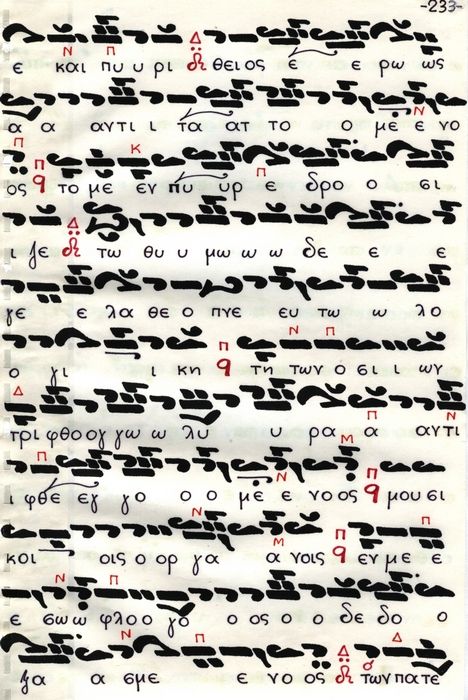 -233-
ε και πυ υ ρι θει ος ε ε ρω ως
α α αντι ι τα ατ το ο με ε νο
ος το με εν πυ υρ ε δρο ο σι
ι ζε τω θυ υ μω ω ω δε ε ε
γε ε λα θε ο πνε ευ τω ω λο
ο γι ι κη τη των ο σι ι ων
τρι φθο ογ γω ω λυ υ ρα α αντι
ι φθε εγ γο ο ο με ε νο ος μου σι
κοι οις ο ορ γα α νοις εν με ε
ε σω ω φλο ο γο ο ος ο ο δε δο ο
ξα α σμε ε νο ος των πα τε